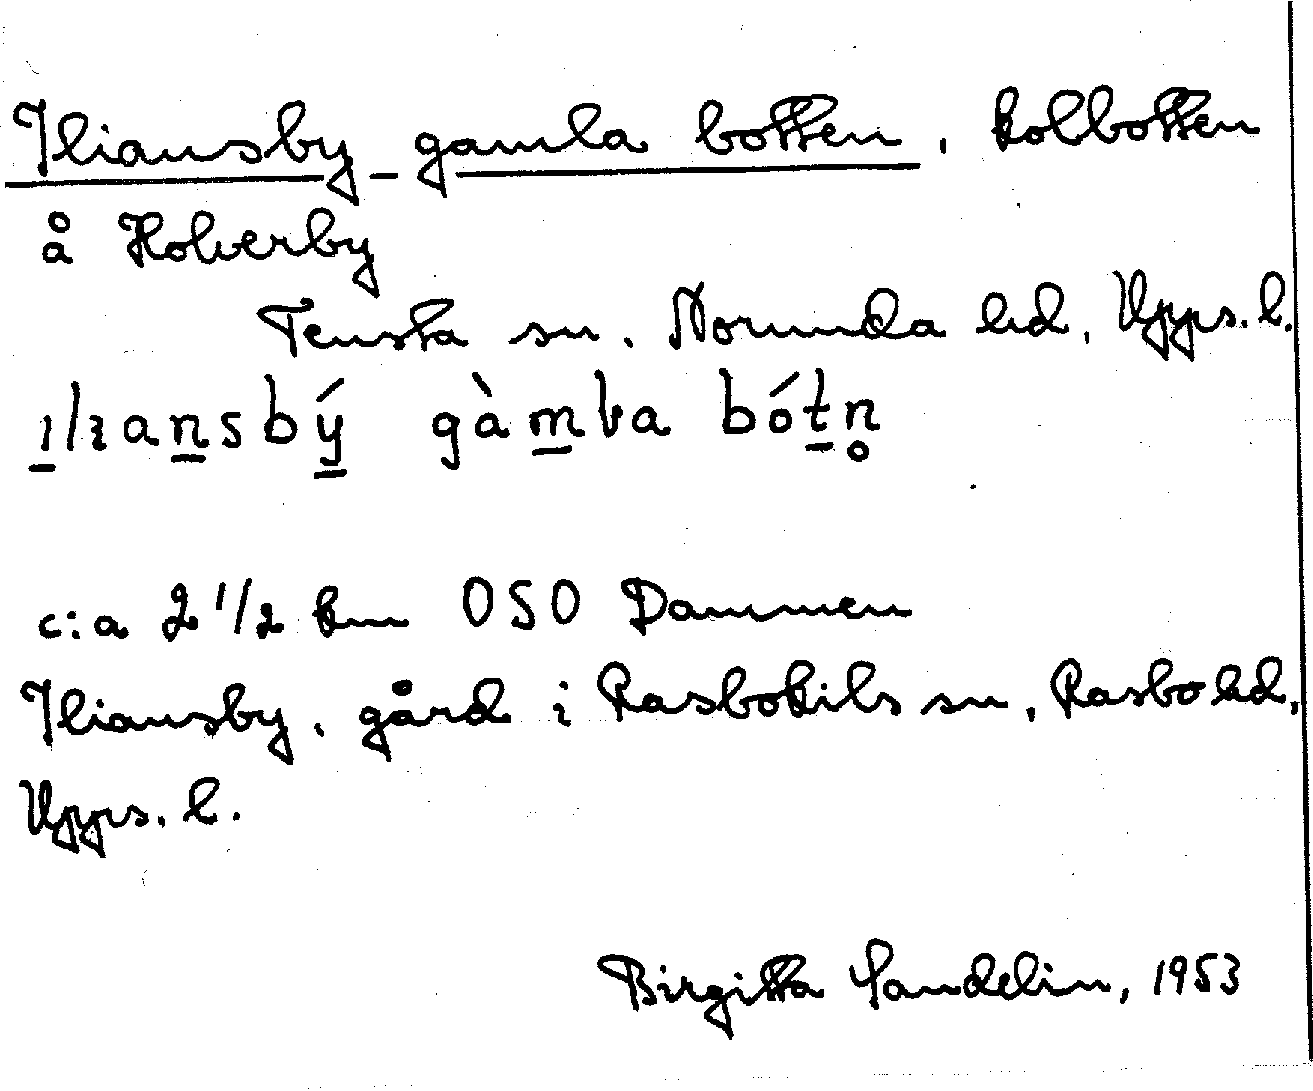 Iliansby gamla botten, kolbotten
å Holverby
Tensta sn, Norunda hd, Upps. l.
ılıansbý gàmla bótn̥
c:a 2 1/2 km OSO Dammen
Iliansby, gård i Rasbokils sn, Rasbo hd,
Upps. l.
Birgitta Sandelin, 1953